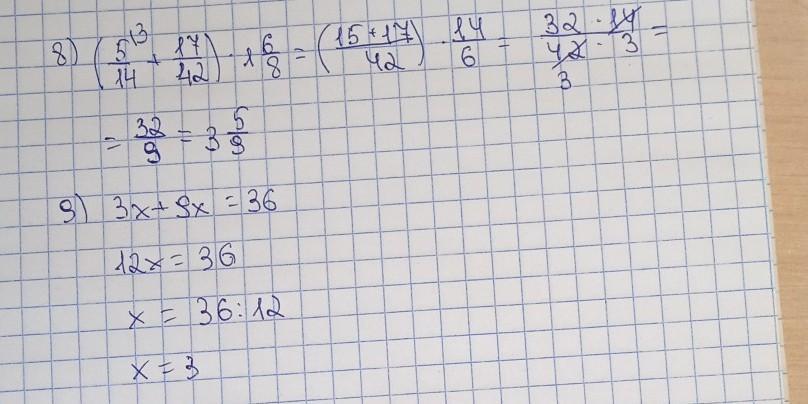 8) (5/14 ⁽³ + 17/42) · 1 6/8 = (15+17/42) · 14/6 = 32 · 14/42 · 3 =
3
= 32/9 = 3 5/9
9) 3x + 9x = 36
12x = 36
x = 36 : 12
x = 3